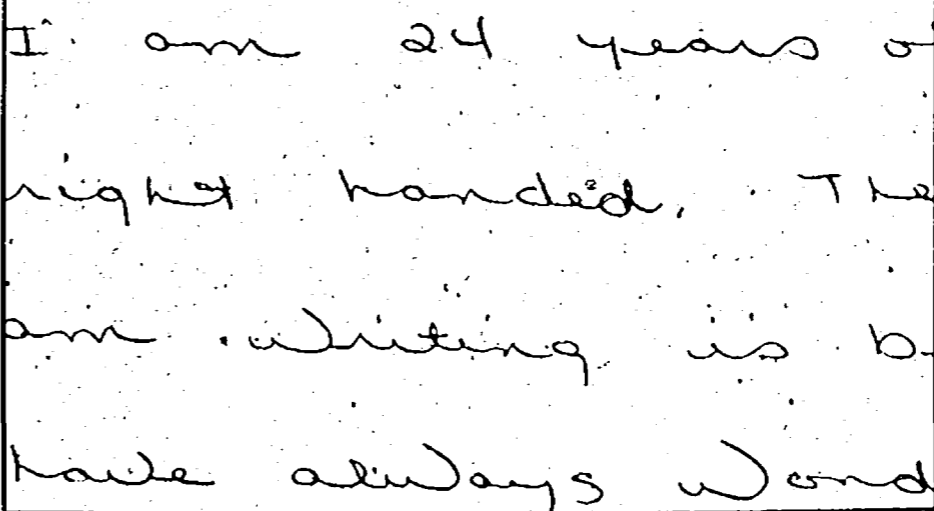 I am 24 years o
right handed. The
am writing is b
have always wond